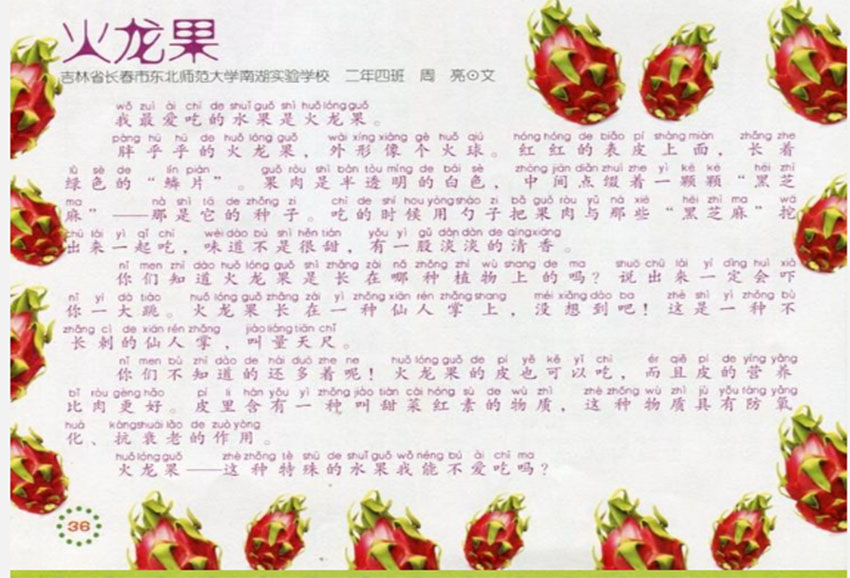 火龙果
吉林省长春市东北师范大学南湖实验学校 二年四班 周 亮⊙文
wǒ zuì ài chī de shuǐ guǒ shì huǒ lóng guǒ
我最爱吃的水果是火龙果。
pàng hū hū de huǒ lóng guǒ wài xíng xiàng gè huǒ qiú hóng hóng de biǎo pí shàng miàn zhǎng zhe
胖乎乎的火龙果，外形像个火球。红红的表皮上面，长着
lǜ sè de lín piàn guǒ ròu shì bàn tòu míng de bái sè zhōng jiān diǎn zhuì zhe yì kē kē hēi zhī
绿色的“鳞片”。果肉是半透明的白色，中间点缀着一颗颗“黑芝
ma nà shì tā de zhǒng zi chī de shí hou yòng sháo zi bǎ guǒ ròu yǔ nà xiē hēi zhī ma wā
麻”——那是它的种子。吃的时候用勺子把果肉与那些“黑芝麻”挖
chū lái yì qǐ chī wèi dào bú shì hěn tián yǒu yì gǔ dàn dàn de qīng xiāng
出来一起吃，味道不是很甜，有一股淡淡的清香。
nǐ men zhī dào huǒ lóng guǒ shì zhǎng zài nǎ zhǒng zhí wù shang de ma shuō chū lái yí dìng huì xià
你们知道火龙果是长在哪种植物上的吗？说出来一定会吓
nǐ yí dà tiào huǒ lóng guǒ zhǎng zài yì zhǒng xiān rén zhǎng shang méi xiǎng dào ba zhè shì yì zhǒng bù
你一大跳。火龙果长在一种仙人掌上，没想到吧！这是一种不
zhǎng cì de xiān rén zhǎng jiào liáng tiān chǐ
长刺的仙人掌，叫量天尺。
nǐ men bù zhī dào de hái duō zhe ne huǒ lóng guǒ de pí yě kě yǐ chī ér qiě pí de yíng yǎng
你们不知道的还多着呢！火龙果的皮也可以吃，而且皮的营养
bǐ ròu gèng hǎo pí li hán yǒu yì zhǒng jiào tián cài hóng sù de wù zhì zhè zhǒng wù zhì jù yǒu fáng yǎng
比肉更好。皮里含有一种叫甜菜红素的物质，这种物质具有防氧
huà kàng shuāi lǎo de zuò yòng
化、抗衰老的作用。
huǒ lóng guǒ zhè zhǒng tè shū de shuǐ guǒ wǒ néng bú ài chī ma
火龙果——这种特殊的水果我能不爱吃吗？
36